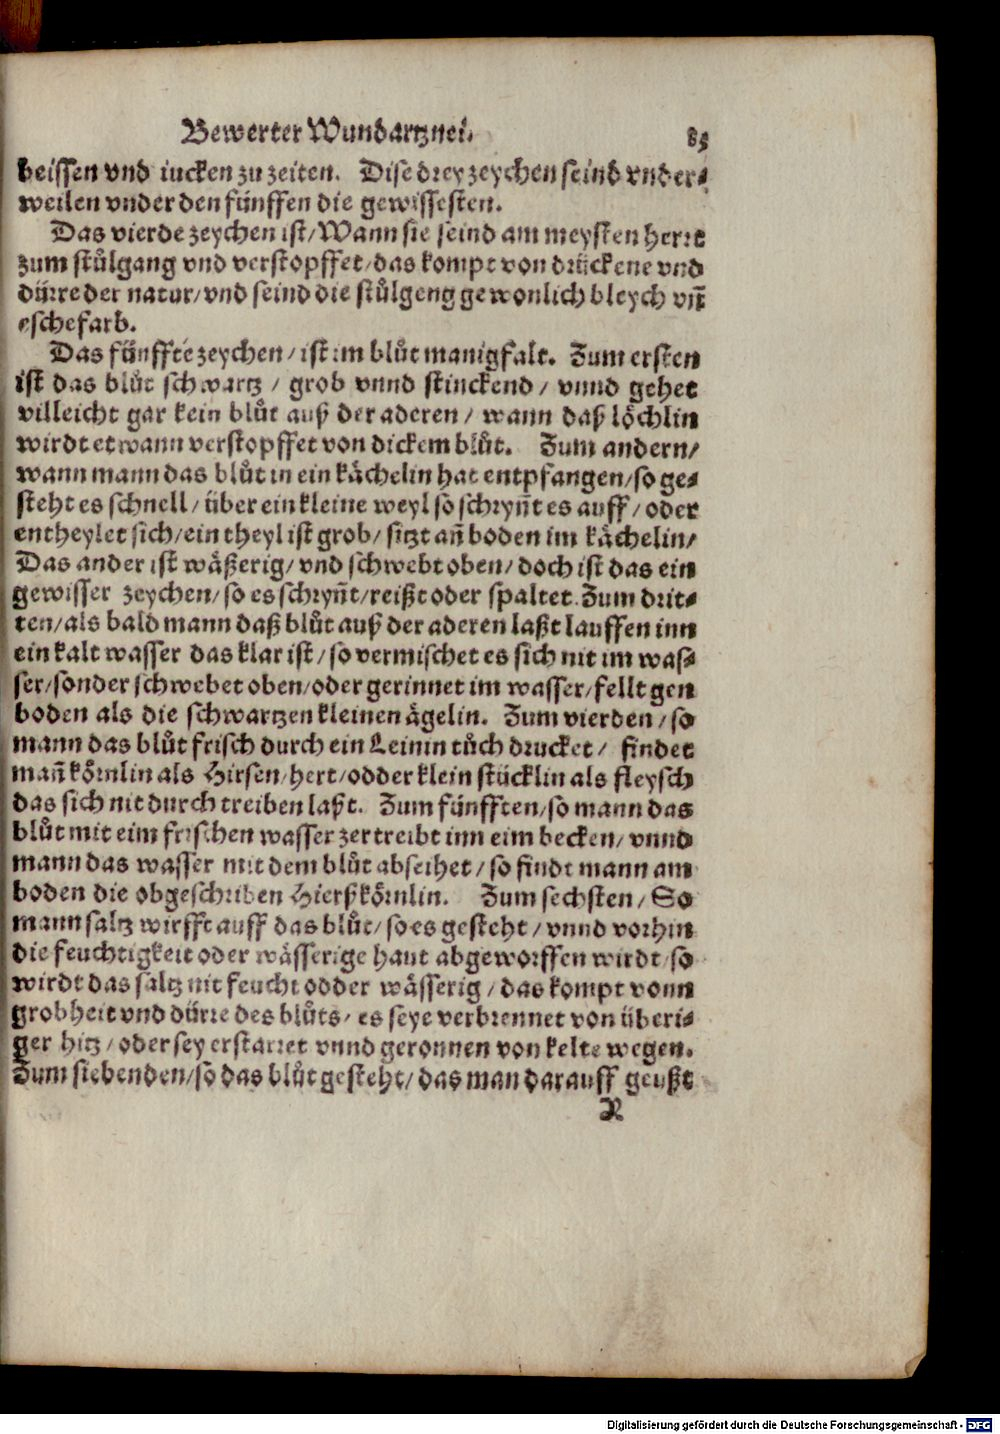 Bewerter Wundartznei. 85
beissen vnd iucken zu zeiten. Dise drey zeychen seind vnder⸗
weilen vnder den fünffen die gewissesten.
Das vierde zeychen ist/Wann sie seind am meysten herrt
zum stůlgang vnd verstopffet/das kompt von drückene vnd
dürre der natur/vnd seind die stůlgeng gewonlich bleych vñ
eschefarb.
Das fünffte zeychen/ist im blůt manigfalt. Zum ersten
ist das blůt schwartz / grob vnnd stinckend/ vnnd gehet
villeicht gar kein blůt auß der aderen/ wann daß löchlin
wirdt etwann verstopffet von dickem blůt. Zum andern/
wann mann das blůt in ein kächelin hat entpfangen/so ge⸗
steht es schnell/über ein kleine weyl so schryñt es auff/oder
entheylet sich/ein theyl ist grob/ sitzt añ boden im kächelin/
Das ander ist wäßerig/vnd schwebt oben/doch ist das ein
gewisser zeychen/so es schryñt/reißt oder spaltet. Zum drit⸗
ten/als bald mann daß blůt auß der aderen laßt lauffen inn
ein kalt wasser das klar ist/so vermischet es sich nit im was⸗
ser/sonder schwebet oben/oder gerinnet im wasser/fellt gen
boden als die schwartzen kleinen ägelin. Zum vierden/so
mann das blůt frisch durch ein Leinin tůch drucket/ findet
mañ körnlin als Hirsen/hert/odder klein stücklin als fleysch
das sich nit durch treiben laßt. Zum fünfften/so mann das
blůt mit eim frischen wasser zertreibt inn eim becken/vnnd
mann das wasser mit dem blůt abseihet/so findt mann am
boden die obgeschriben Hierßkörnlin. Zum sechsten/So
mann saltz wirfft auff das blůt/so es gesteht/vnnd vorhin
die feuchtigkeit oder wässerige haut abgeworffen wirdt/so
wirdt das saltz nit feucht odder wässerig/das kompt vonn
grobheit vnd dürre des blůts/es seye verbrennet von überi⸗
ger hitz/oder sey erstarret vnnd geronnen von kelte wegen.
Zum siebenden/so das blůt gesteht/das man darauff geußt
R
Digitalisierung gefördert durch die Deutsche Forschungsgemeinschaft - DFG